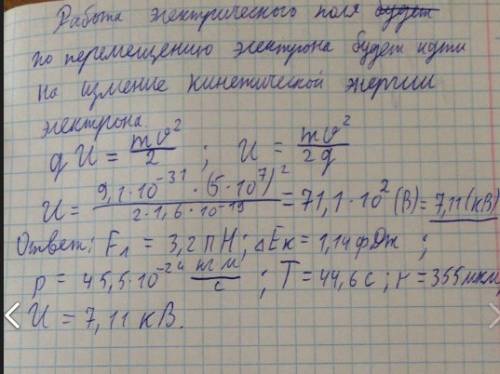 Работа электрического поля будет
по перемещению электрона будет идти
на измение кинетической энергии
электрона
qU = mυ²/2 ; U = mυ²/2q
U = 9,1·10⁻³¹·(5·10⁷)²/2·1,6·10⁻¹⁹ = 71,1·10² (В) = 7,11 (кВ)
Ответ: Fл = 3,2 пН; ΔEк = 1,14 фДж ;
p = 45,5·10⁻²⁴ кг м/с ; T = 44,6 с ; r = 355 мкм
U = 7,11 кВ.